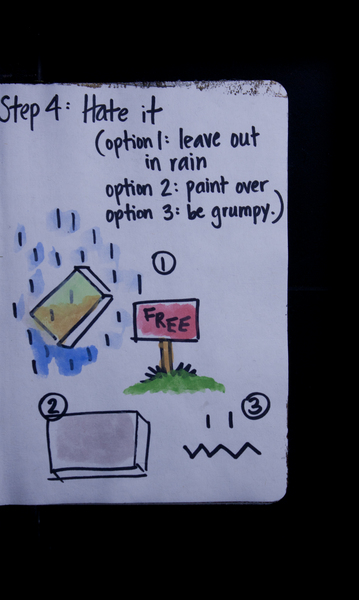 Step 4: Hate it
(option 1: leave out
in rain
option 2: paint over
option 3: be grumpy.)
1
FREE
2
3